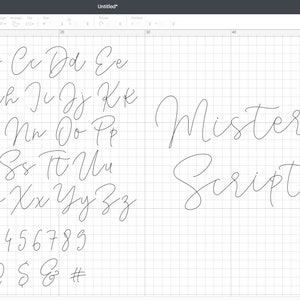 Untitled*
20 30 40
Cc Dd Ee
h Ii Jj Kk
Nn Oo Pp
Ss Tt Uu
Xx Yy Zz
4 5 6 7 8 9
$ & #
Mister
Script